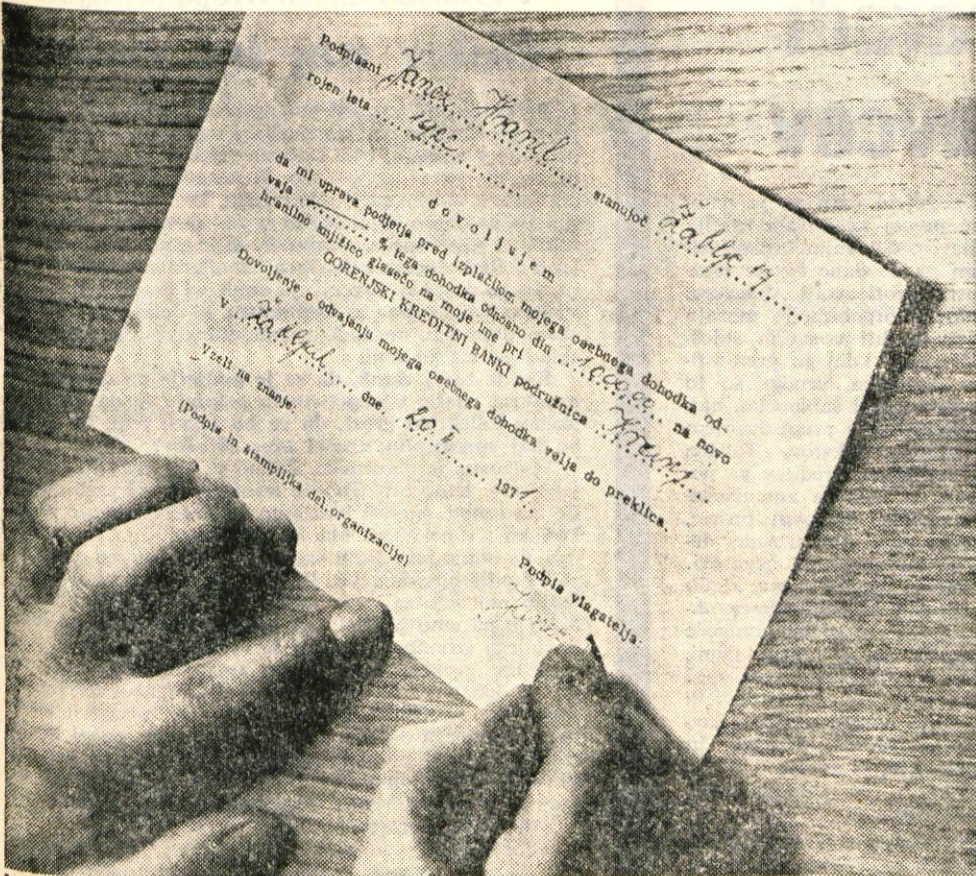 Podpisani Janez Hranil stanujoč Žablje 17
rojen leta 1922
dovoljujem
da mi uprava podjetja pred izplačilom mojega osebnega dohodka od-
vaja % tega dohodka odnosno din 1.000,00 na novo
hranilno knjižico glasečo na moje ime pri
GORENJSKI KREDITNI BANKI podružnica
Dovoljenje o odvajanju mojega osebnega dohodka velja do preklica.
V Žabljah dne, 20. 1971.
Vzeli na znanje:
(Podpis in štampiljka del. organizacije)
Podpis vlagatelja: